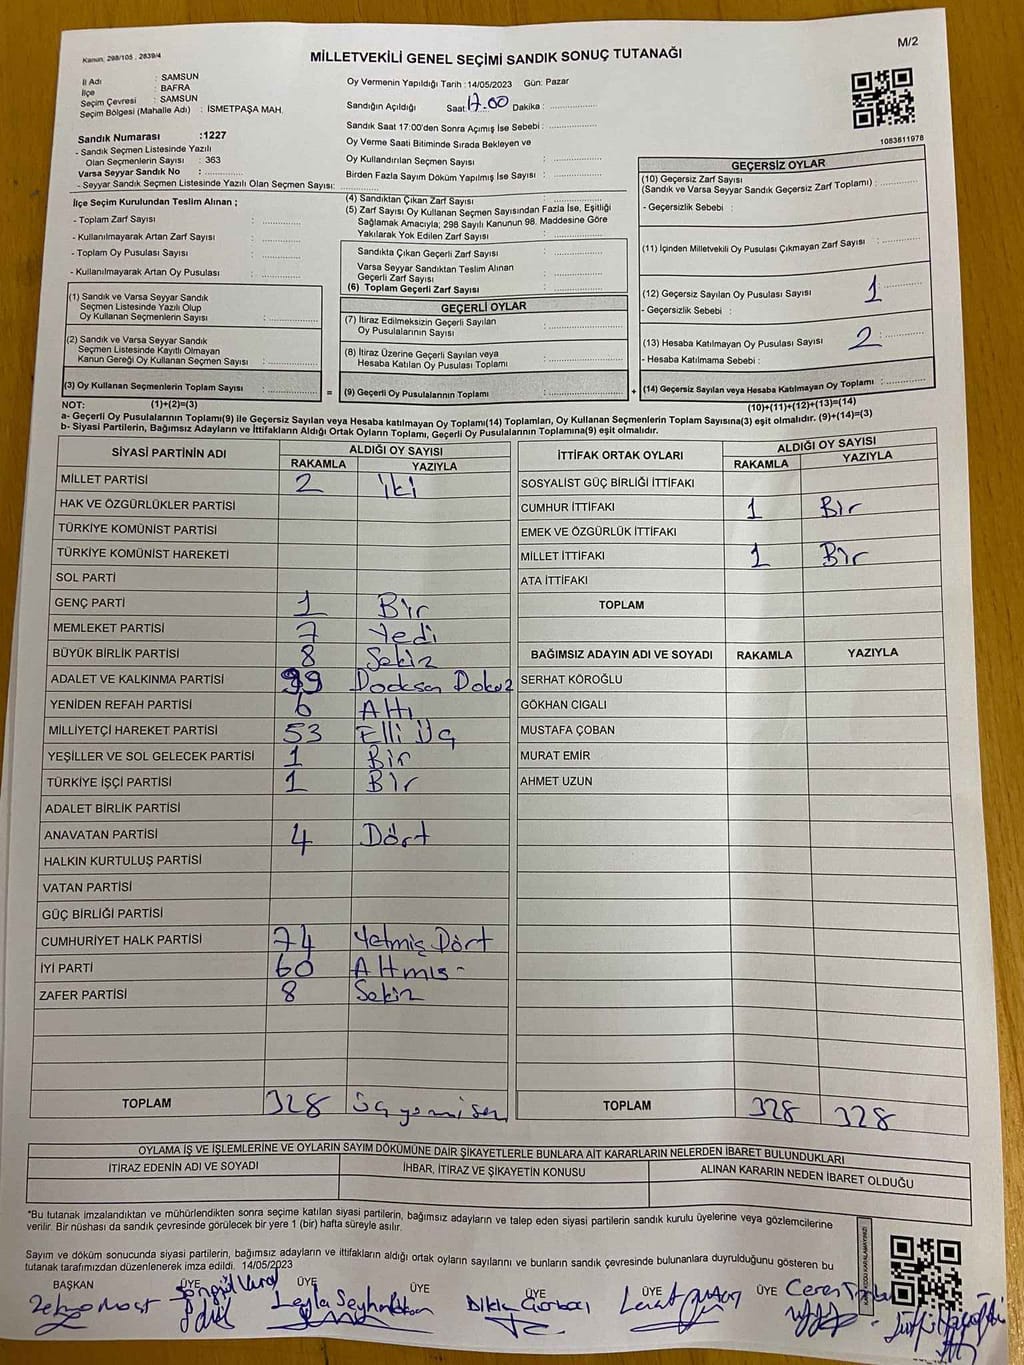 Kanun, 298/105 , 2839/4
MİLLETVEKİLİ GENEL SEÇİMİ SANDIK SONUÇ TUTANAĞI
M/2
İl Adı : SAMSUN
İlçe : BAFRA
Seçim Çevresi : SAMSUN
Seçim Bölgesi (Mahalle Adı) : İSMETPAŞA MAH.
Oy Vermenin Yapıldığı Tarih :14/05/2023 Gün: Pazar
Sandığın Açıldığı Saat 17.00 Dakika :
Sandık Saat 17:00'den Sonra Açımış İse Sebebi :
Oy Verme Saati Bitiminde Sırada Bekleyen ve
Oy Kullandırılan Seçmen Sayısı :
Birden Fazla Sayım Döküm Yapılmış İse Sayısı :
1083811978
Sandık Numarası :1227
- Sandık Seçmen Listesinde Yazılı
Olan Seçmenlerin Sayısı : 363
Varsa Seyyar Sandık No :
- Seyyar Sandık Seçmen Listesinde Yazılı Olan Seçmen Sayısı:
İlçe Seçim Kurulundan Teslim Alınan ;
- Toplam Zarf Sayısı :
- Kullanılmayarak Artan Zarf Sayısı :
- Toplam Oy Pusulası Sayısı :
- Kullanılmayarak Artan Oy Pusulası :
(1) Sandık ve Varsa Seyyar Sandık
Seçmen Listesinde Yazılı Olup
Oy Kullanan Seçmenlerin Sayısı :
(2) Sandık ve Varsa Seyyar Sandık
Seçmen Listesinde Kayıtlı Olmayan
Kanun Gereği Oy Kullanan Seçmen Sayısı :
(3) Oy Kullanan Seçmenlerin Toplam Sayısı : =
(4) Sandıktan Çıkan Zarf Sayısı :
(5) Zarf Sayısı Oy Kullanan Seçmen Sayısından Fazla İse, Eşitliği
Sağlamak Amacıyla; 298 Sayılı Kanunun 98. Maddesine Göre
Yakılarak Yok Edilen Zarf Sayısı :
Sandıkta Çıkan Geçerli Zarf Sayısı :
Varsa Seyyar Sandıktan Teslim Alınan
Geçerli Zarf Sayısı :
(6) Toplam Geçerli Zarf Sayısı :
GEÇERLİ OYLAR
(7) İtiraz Edilmeksizin Geçerli Sayılan
Oy Pusulalarının Sayısı :
(8) İtiraz Üzerine Geçerli Sayılan veya
Hesaba Katılan Oy Pusulası Toplamı :
(9) Geçerli Oy Pusulalarının Toplamı : +
GEÇERSİZ OYLAR
(10) Geçersiz Zarf Sayısı
(Sandık ve Varsa Seyyar Sandık Geçersiz Zarf Toplamı) :
- Geçersizlik Sebebi :
(11) İçinden Milletvekili Oy Pusulası Çıkmayan Zarf Sayısı :
(12) Geçersiz Sayılan Oy Pusulası Sayısı : 1
- Geçersizlik Sebebi :
(13) Hesaba Katılmayan Oy Pusulası Sayısı : 2
- Hesaba Katılmama Sebebi :
(14) Geçersiz Sayılan veya Hesaba Katılmayan Oy Toplamı :
NOT: (1)+(2)=(3) (10)+(11)+(12)+(13)=(14)
a- Geçerli Oy Pusulalarının Toplamı(9) ile Geçersiz Sayılan veya Hesaba katılmayan Oy Toplamı(14) Toplamları, Oy Kullanan Seçmenlerin Toplam Sayısına(3) eşit olmalıdır. (9)+(14)=(3)
b- Siyasi Partilerin, Bağımsız Adayların ve İttifakların Aldığı Ortak Oyların Toplamı, Geçerli Oy Pusulalarının Toplamına(9) eşit olmalıdır.
SİYASİ PARTİNİN ADI ALDIĞI OY SAYISI
RAKAMLA YAZIYLA
MİLLET PARTİSİ 2 iki
HAK VE ÖZGÜRLÜKLER PARTİSİ
TÜRKİYE KOMÜNİST PARTİSİ
TÜRKİYE KOMÜNİST HAREKETİ
SOL PARTİ
GENÇ PARTİ 1 Bir
MEMLEKET PARTİSİ 7 Yedi
BÜYÜK BİRLİK PARTİSİ 8 Sekiz
ADALET VE KALKINMA PARTİSİ 99 Docksan Dokuz
YENİDEN REFAH PARTİSİ 6 Altı
MİLLİYETÇİ HAREKET PARTİSİ 53 Elli Üç
YEŞİLLER VE SOL GELECEK PARTİSİ 1 Bir
TÜRKİYE İŞÇİ PARTİSİ 1 Bir
ADALET BİRLİK PARTİSİ
ANAVATAN PARTİSİ 4 Dört
HALKIN KURTULUŞ PARTİSİ
VATAN PARTİSİ
GÜÇ BİRLİĞİ PARTİSİ
CUMHURİYET HALK PARTİSİ 74 Yetmiş Dört
İYİ PARTİ 60 Altmış -
ZAFER PARTİSİ 8 Sekiz
TOPLAM 328
İTTİFAK ORTAK OYLARI ALDIĞI OY SAYISI
RAKAMLA YAZIYLA
SOSYALİST GÜÇ BİRLİĞİ İTTİFAKI
CUMHUR İTTİFAKI 1 Bir
EMEK VE ÖZGÜRLÜK İTTİFAKI
MİLLET İTTİFAKI 1 Bir
ATA İTTİFAKI
TOPLAM
BAĞIMSIZ ADAYIN ADI VE SOYADI RAKAMLA YAZIYLA
SERHAT KÖROĞLU
GÖKHAN CIGALI
MUSTAFA ÇOBAN
MURAT EMİR
AHMET UZUN
TOPLAM 328 328
OYLAMA İŞ VE İŞLEMLERİNE VE OYLARIN SAYIM DÖKÜMÜNE DAİR ŞİKAYETLERLE BUNLARA AİT KARARLARIN NELERDEN İBARET BULUNDUKLARI
İTİRAZ EDENİN ADI VE SOYADI İHBAR, İTİRAZ VE ŞİKAYETİN KONUSU ALINAN KARARIN NEDEN İBARET OLDUĞU
*Bu tutanak imzalandıktan ve mühürlendikten sonra seçime katılan siyasi partilerin, bağımsız adayların ve talep eden siyasi partilerin sandık kurulu üyelerine veya gözlemcilerine
verilir. Bir nüshası da sandık çevresinde görülecek bir yere 1 (bir) hafta süreyle asılır.
Sayım ve döküm sonucunda siyasi partilerin, bağımsız adayların ve ittifakların aldığı ortak oyların sayılarını ve bunların sandık çevresinde bulunanlara duyrulduğunu gösteren bu
tutanak tarafımızdan düzenlenerek imza edildi. 14/05/2023
BAŞKAN ÜYE ÜYE ÜYE ÜYE ÜYE ÜYE